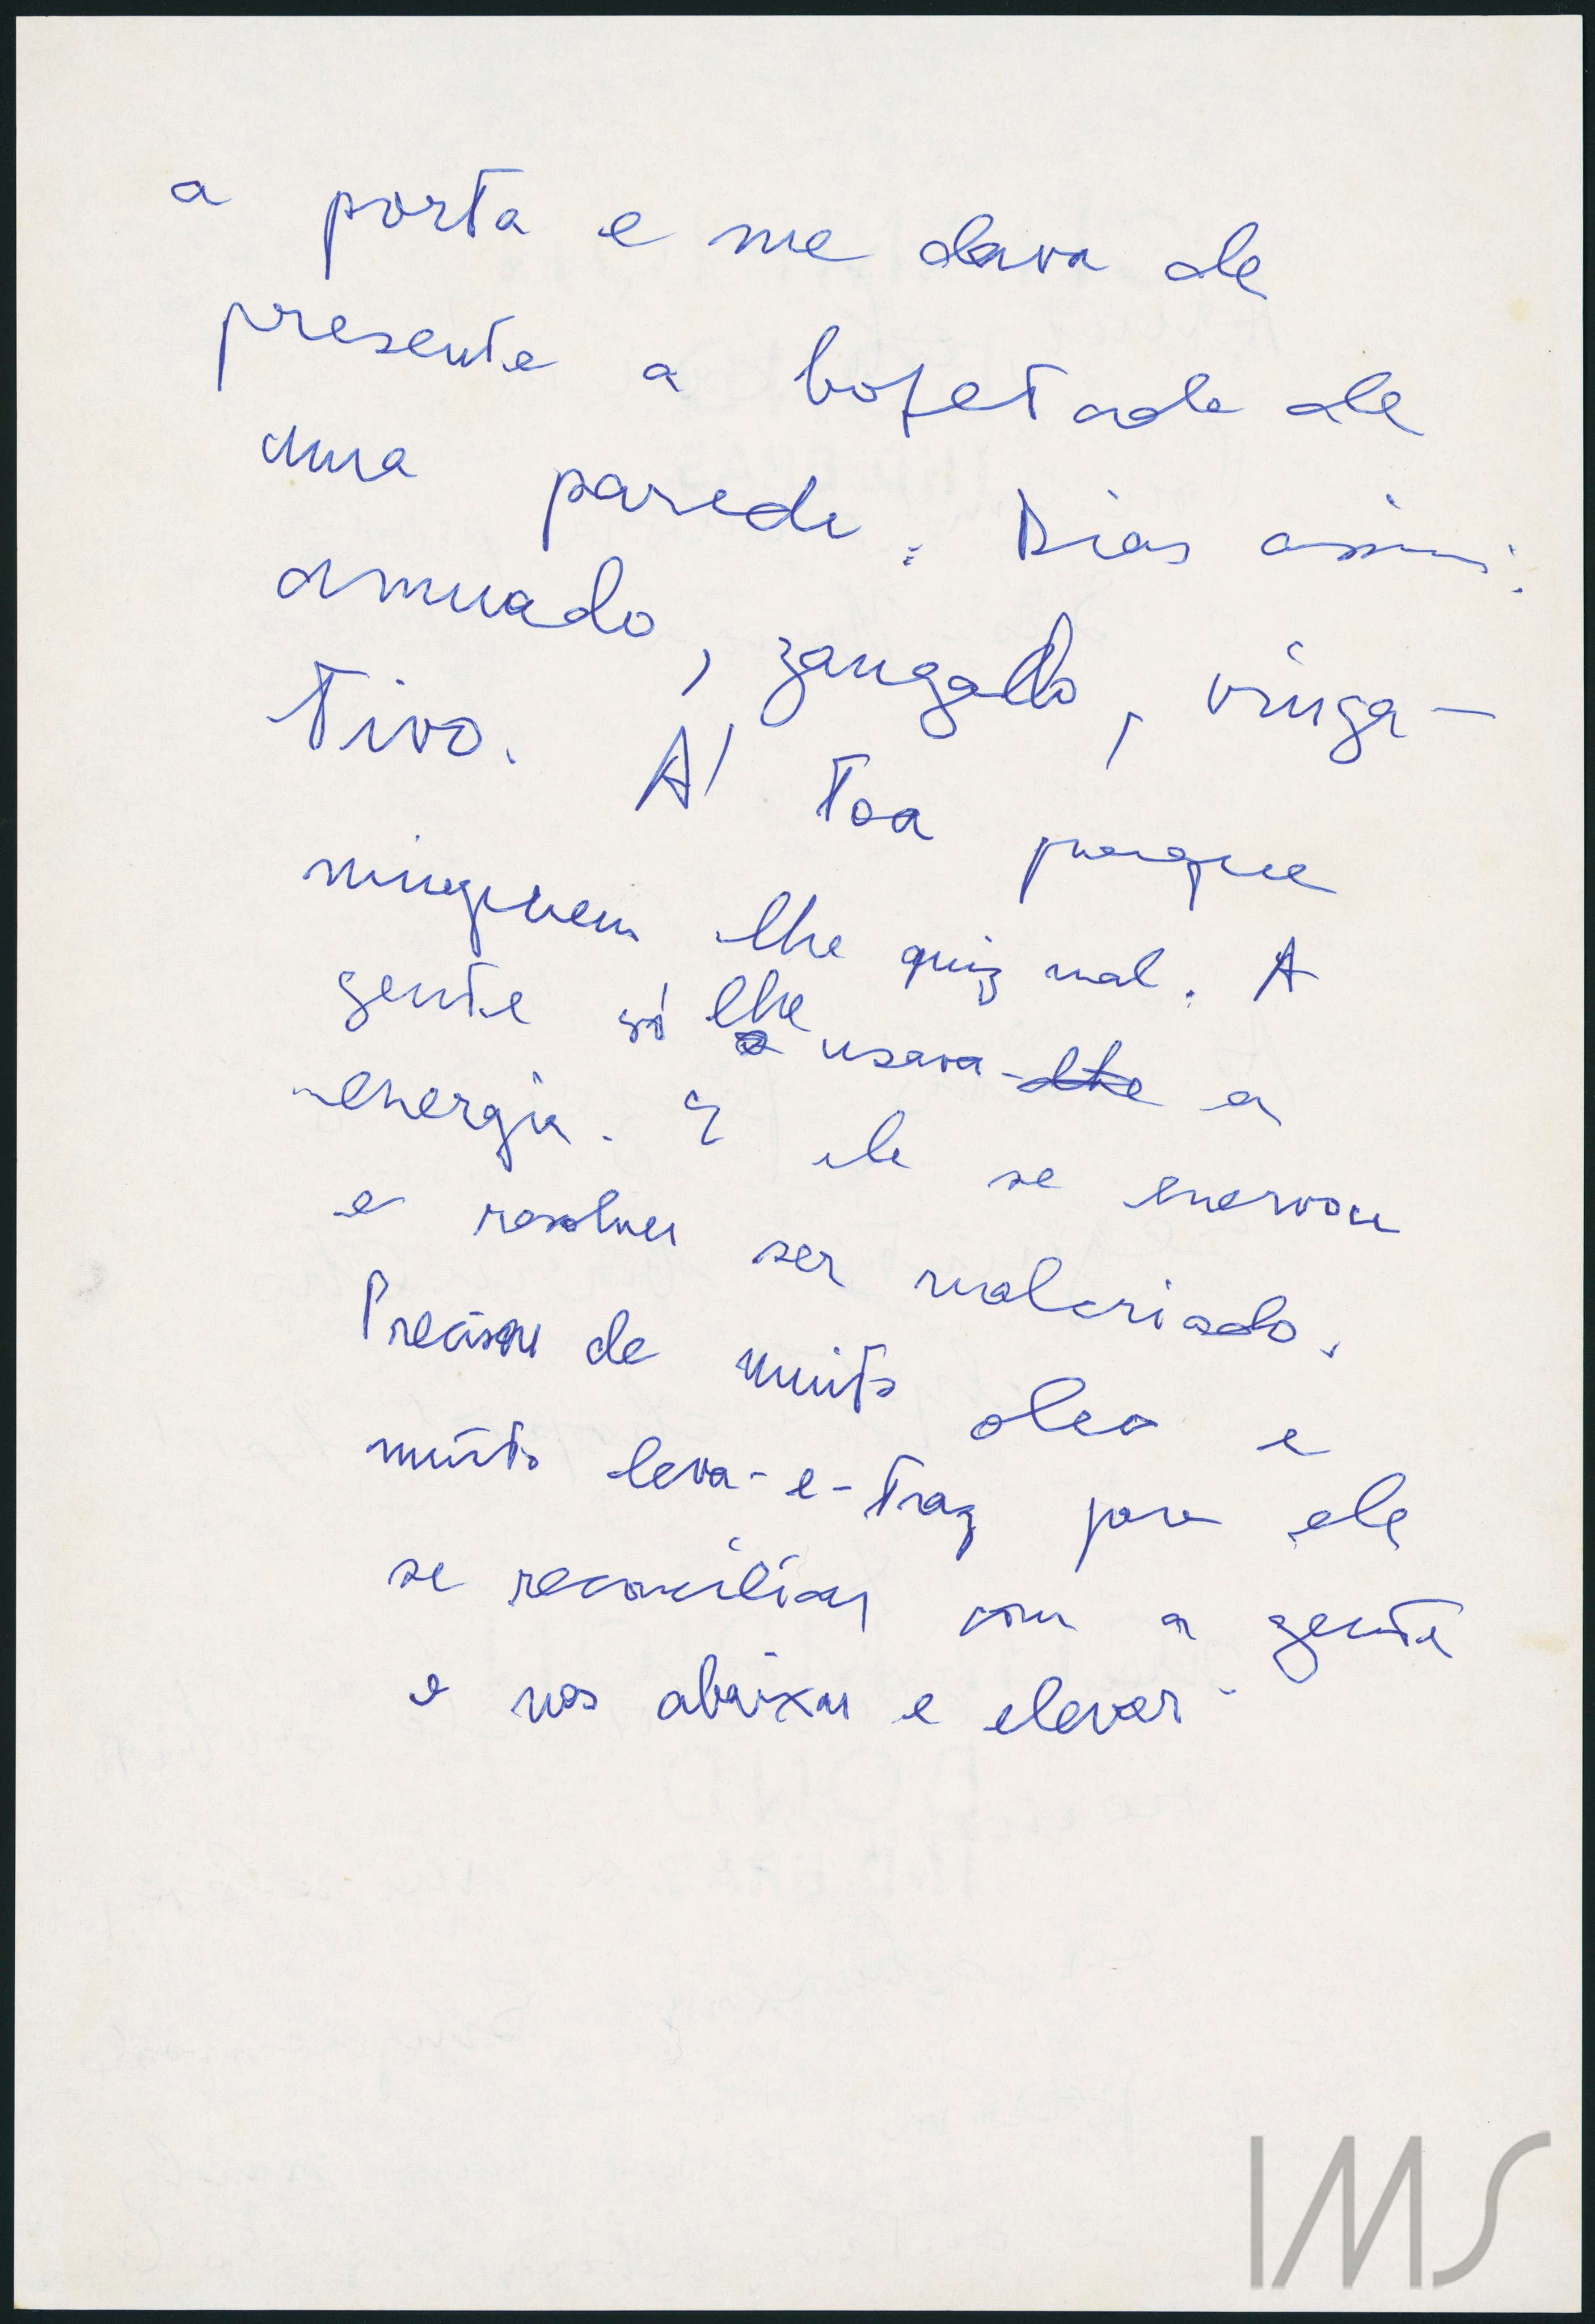 a porta e me dava de
presente a bofetada de
uma parede. Dias assim:
amuado, zangado, vinga-
tivo. A' toa porque
ninguem lhe quiz mal. A
gente só lhe usava a
energia. E ele se enervou
e resolveu ser malcriado.
Precisou de muito oleo e
muito leva-e-traz para ele
se reconciliar com a gente
e nos abaixar e elevar.
IMS